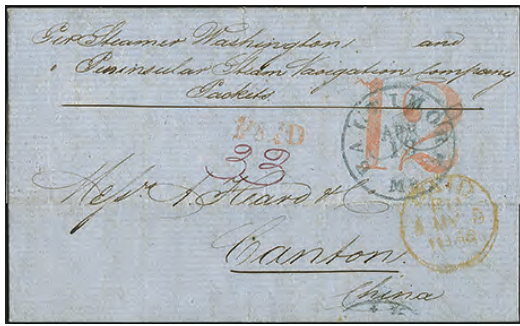 Per Steamer Washington and
Peninsular Steam Navigation Company
Packets.
12
BALTIMORE
APR
Md
PAID
33
PAID
Messrs A. Heard & Co
Canton.
China